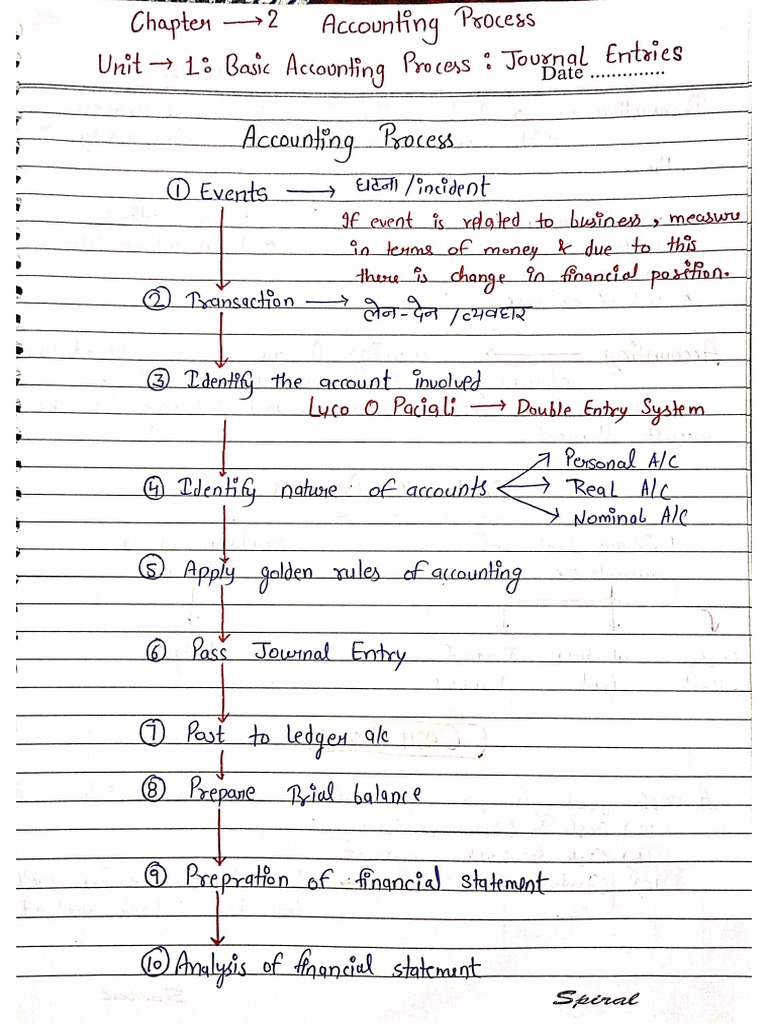 Chapter → 2 Accounting Process
Unit → 1: Basic Accounting Process : Journal Entries
Date ..............
Accounting Process
① Events → घटना /incident
If event is related to business, measure
in terms of money & due to this
there is change in financial position.
② Transaction → लेन-देन /व्यवहार
③ Identify the account involved
Lyco O Paciali → Double Entry System
Personal A/C
④ Identify nature of accounts → Real A/C
Nominal A/C
⑤ Apply golden rules of accounting
⑥ Pass Journal Entry
⑦ Post to ledger a/c
⑧ Prepare Trial balance
⑨ Prepration of financial statement
⑩ Analysis of financial statement
Spiral